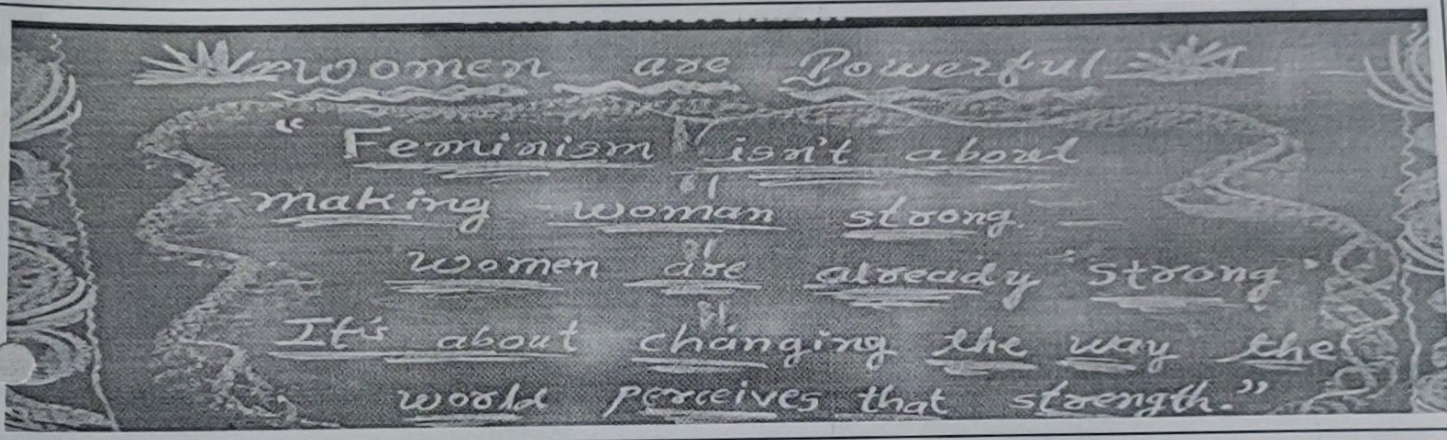 women are Powerful
"Feminism isn't about
making woman strong.
women are already 'strong'
It's about changing the way the
world perceives that strength."